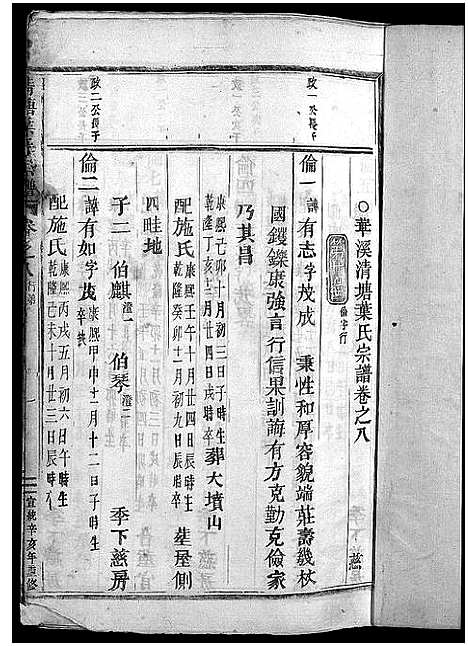 ○華溪清塘葉氏宗譜卷之八
倫字行
季下慈
政一公長子
倫一諱有志字茂成 秉性和厚容貌端莊壽幾杖
國鑊鑠康強言行信果訓誨有方克勤克儉家
乃其昌
康熙己卯十月初三日子時生
乾隆丁亥三月初三日戌時卒
葬大墳山
配施氏
康熙壬午十月廿四日辰時生
乾隆癸卯二月初九日辰時卒
塟屋側
四畦地
政二公長子
倫二諱有如字茂
康熙甲申十一月十二日子時生
子二 伯麒澄一 伯琴澄二 季下慈房
配施氏
康熙丙戌五月初六日午時生
乾隆己未十月廿三日辰時卒
清塘葉氏宗譜
卷之八
行第
一
宣統辛亥年重修